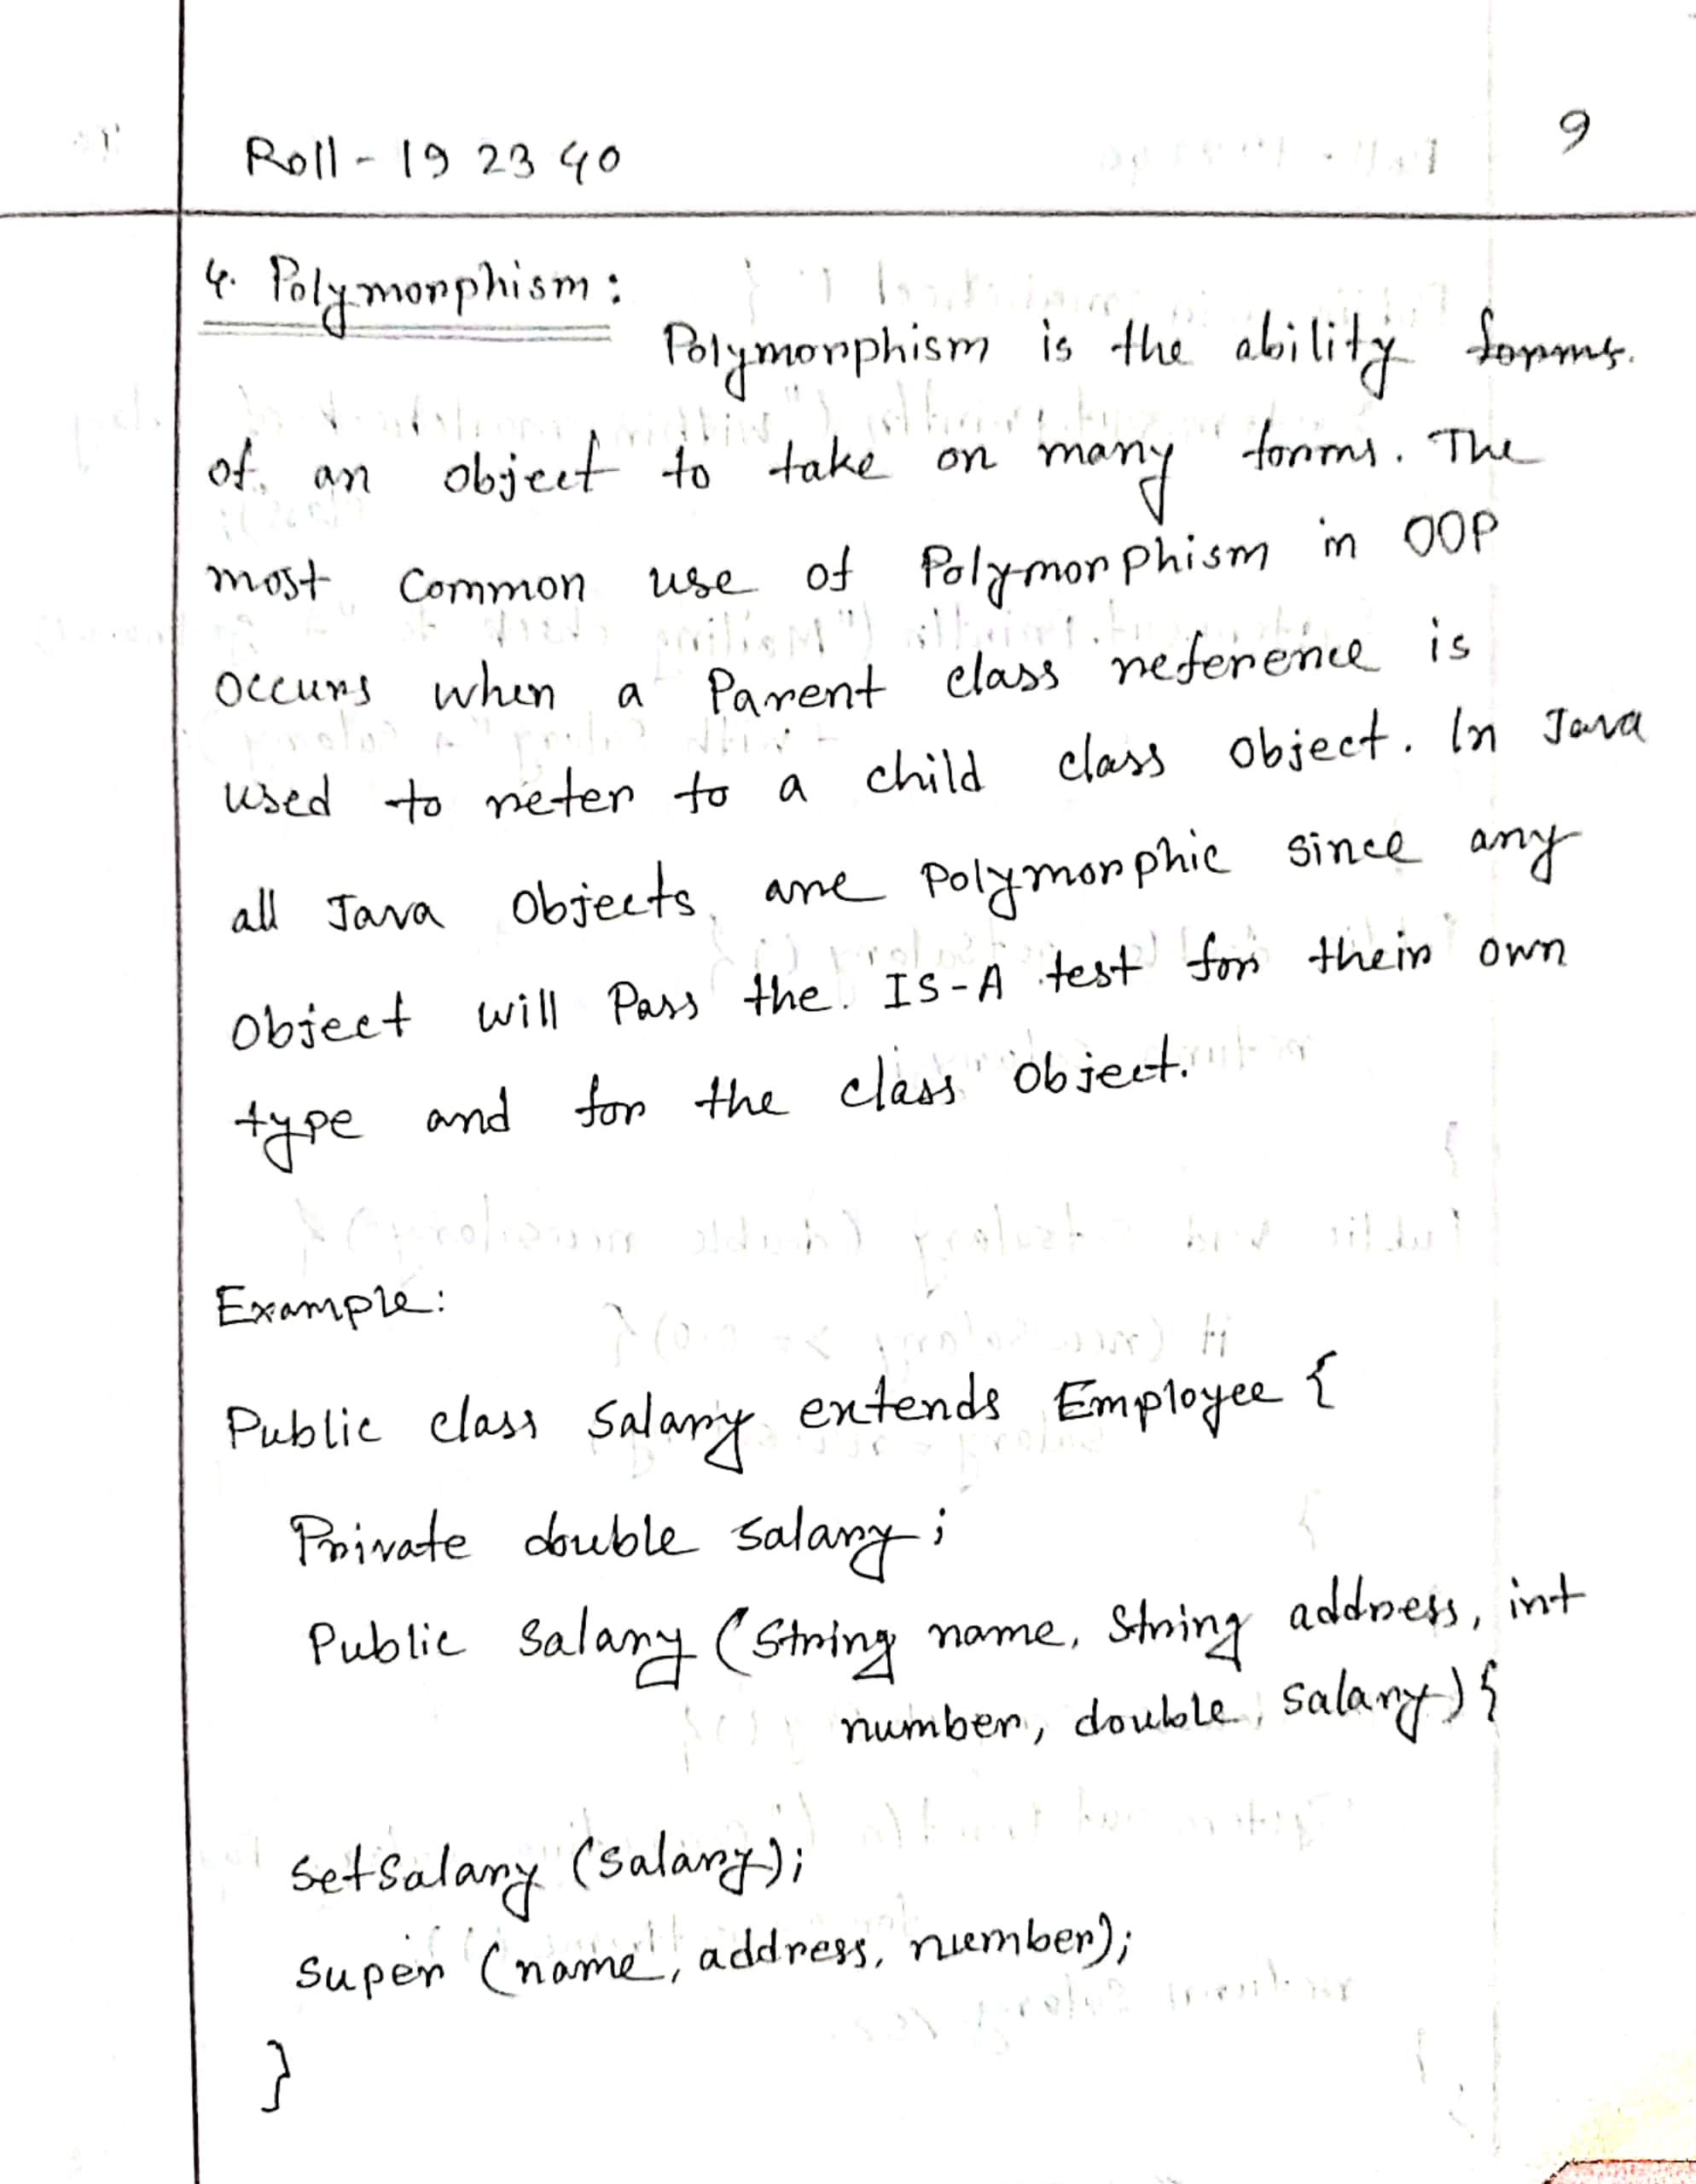 Roll - 192340
9
4. Polymorphism:
Polymorphism is the ability forms.
of an object to take on many forms. The
most common use of Polymorphism in OOP
occurs when a Parent class reference is
used to refer to a child class object. In Java
all Java Objects are Polymorphic since any
Object will Pass the IS-A test for their own
type and for the class Object.
Example:
Public class Salary extends Employee {
Private double salary;
Public Salary (String name, String address, int
number, double, salary) {
SetSalary (salary);
super (name, address, number);
}